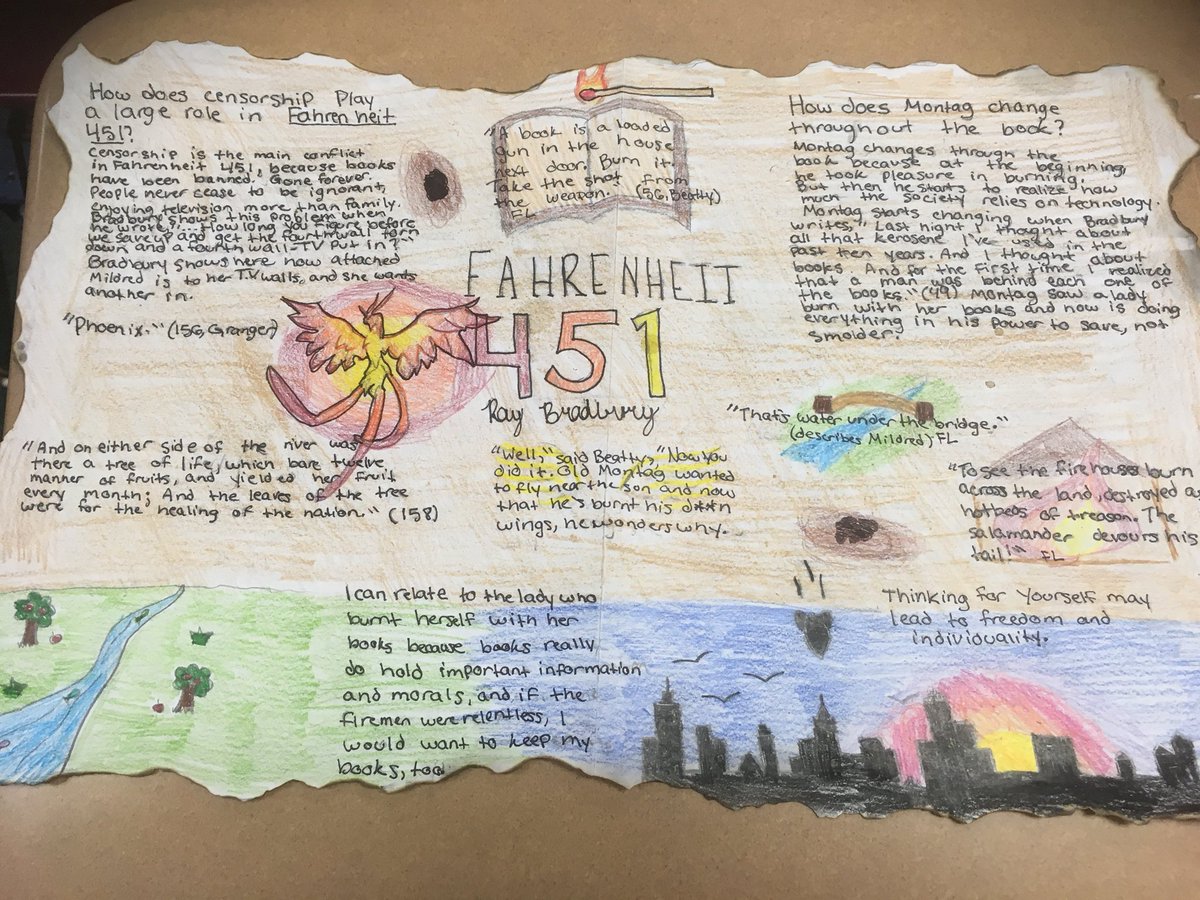 How does censorship Play
a large role in Fahrenheit
451?
Censorship is the main conflict
in Fahrenheit 451, because books
have been banned. Gone forever.
People never cease to be ignorant,
enjoying television more than family.
Bradbury shows this problem when
he wrote, "... How long you figure before
we save up and get the fourth wall torn
down and a fourth wall-TV put in?"
Bradbury shows here how attached
Mildred is to her TV walls, and she wants
another in.
"A book is a loaded
gun in the house
next door. Burn it.
Take the shot from
the weapon... (56, Beatty)
FL
How does Montag change
throughout the book?
Montag changes through the
book because at the beginning,
he took pleasure in burning.
But then he starts to realize how
much the society relies on technology.
Montag starts changing when Bradbury
writes, "Last night I thought about
all that kerosene I've used in the
past ten years. And I thought about
books. And for the first time, I realized
that a man was behind each one of
the books." (49) Montag saw a lady
burn with her books and now is doing
everything in his power to save, not
smolder.
FAHRENHEIT
451
Ray Bradbury
"Phoenix." (156, Granger)
"And on either side of the river was
there a tree of life, which bare twelve
manner of fruits, and yielded her fruit
every month; And the leaves of the tree
were for the healing of the nation." (158)
"Well," said Beatty, "Now you
did it. Old Montag wanted
to fly near the son and now
that he's burnt his d**n
wings, he wonders why.
"That's water under the bridge."
(describes Mildred) FL
"To see the firehouses burn
across the land, destroyed as
hotbeds of treason. The
salamander devours his
tail!" FL
I can relate to the lady who
burnt herself with her
books because books really
do hold important information
and morals, and if the
firemen were relentless, I
would want to keep my
books, too
Thinking for yourself may
lead to freedom and
individuality.